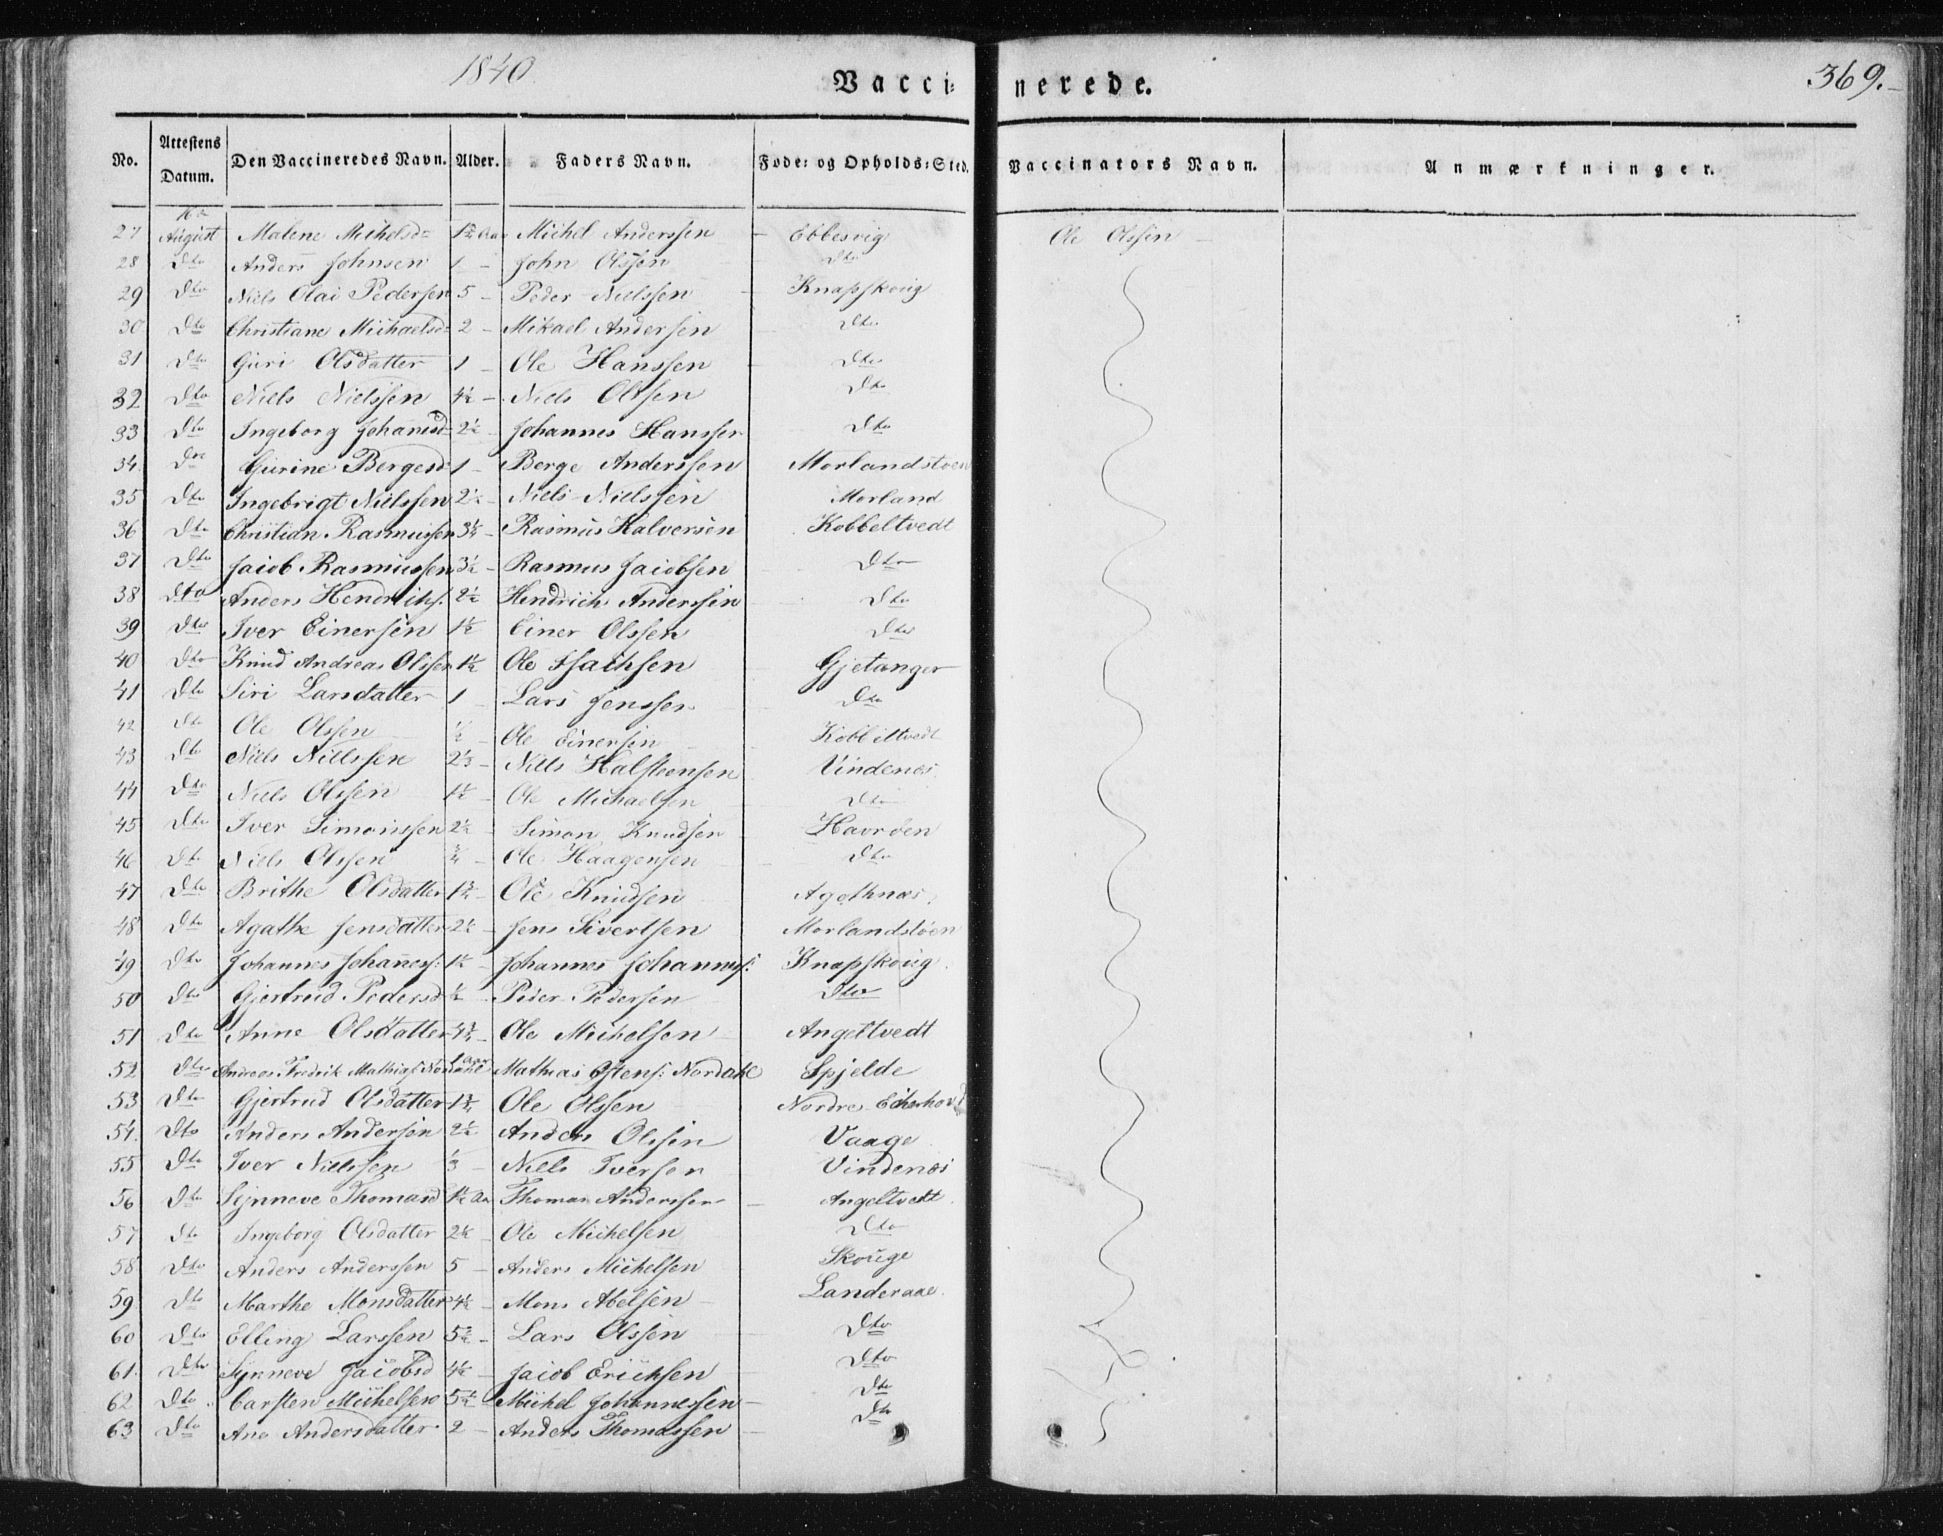 1840
Vacci= nerede.
369.
No. Attestens Datum. Den Vaccineredes Navn. Alder. Faders Navn. Føde: og Opholds: Sted. Vaccinators Navn. Anmærkninger.
27 August Malene Michelsd= Michel Anderssen Ebbesvig Ole Olssen
28 Dto Anders Johnsen 1 - John Olssen Dto
29 Dto Niels Olai Pedersen 5 - Peder Nielssen Knapskoug
30 Dto Christiane Michaelsd= 2 - Mikael Andersen Dto
31 Dto Guri Olsdatter 1 - Ole Hanssen Dto
32 Dto Niels Nielssen 4½ - Niels Olssen Dto
33 Dto Ingeborg Johansd= 2½ - Johannes Hanssen Dto
34 Dto Gurine Bergesd= 1 - Berge Anderssen Morlandstøen
35 Dto Ingebrigt Nielssen 2½ - Niels Nielssen Morland
36 Dto Christian Rasmussen 3½ - Rasmus Halversen Kobbeltvedt
37 Dto Jacob Rasmussen 3½ - Rasmus Jacobsen Dto
38 Dto Anders Hendrichs: 2½ Hendrich Anderssen Dto
39 Dto Iver Einersen 1½ Einer Olssen Dto
40 Dto Knud Andreas Olssen 1½ Ole Isachsen Gjetanger
41 Dto Siri Larsdatter 1 - Lars Jenssen Dto
42 Dto Ole Olssen ½ - Ole Einersen Kobbeltvedt
43 Dto Niels Nielssen 2⅓ - Niels Halstensen Vindenes
44 Dto Niels Olssen 1½ - Ole Michaelsen Dto
45 Dto Iver Simonssen 2½ - Simon Knudsen Havrøen
46 Dto Niels Olssen ¾ - Ole Haagensen Dto
47 Dto Brithe Olsdatter - Ole Knudsen Agothnæs
48 Dto Agathe Jensdatter 2½ - Jens Sivertsen Morlandstøen
49 Dto Johannes Johaness: 1½ - Johannes Johanness: Knapskoug
50 Dto Gjertrud Pedersd ½ - Peder Pedersen Dto
51 Dto Anne Olsdatter - Ole Michelsen Angeltvedt
52 Dto Andreas Fredrik Mathias: Nordahl 1 aar Mathias Ostens: Nordahl Spjelde
53 Dto Gjertrud Olsdatter Ole Olssen Nordre
54. Dto Anders Andersen 2½ Anders Olssen Vaage
55 Dto Iver Nielssen ⅓ - Niels Iversen Vindenes
56 Dto Synneve Thomasd 1½ Aa Thomas Anderssen Angeltvedt
57 Dto Ingeborg Olsdatter 2½ - Ole Michelsen Dto
58 Dto Anders Anderssen 5 - Anders Michelsen Skouge
59 Dto Marthe Monsdatter 4½ - Mons Abelsen Landeraae.
60 Dto Elling Larssen - Lars Olssen Dto
61. Dto Synneve Jacobsd 4½ - Jacob Erichsen Dto
62 Dto Carsten Michelsen - Michel Johannessen Dto
63 Dto Ane Andersdatter 2 - Anders Thomassen Dto